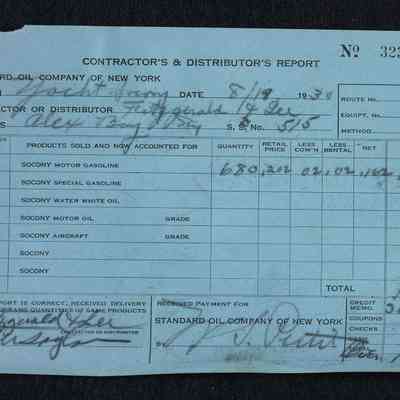 CONTRACTOR'S & DISTRIBUTOR'S REPORT
Nº 323
RD OIL COMPANY OF NEW YORK
Yacht DATE 8/19 1930
ROUTE No.
CTOR OR DISTRIBUTOR Fitzgerald & Lee
EQUIPT. No.
S Alex Bay N.Y. S. S. No. 515
METHOD
PRODUCTS SOLD AND NOW ACCOUNTED FOR QUANTITY RETAIL PRICE LESS COM'N LESS RENTAL NET
SOCONY MOTOR GASOLINE 680 .202 .02 .02 .162
SOCONY SPECIAL GASOLINE
SOCONY WATER WHITE OIL
SOCONY MOTOR OIL GRADE
SOCONY AIRCRAFT GRADE
SOCONY
SOCONY
TOTAL
PORT IS CORRECT, RECEIVED DELIVERY
GRAMS QUANTITIES OF SAME PRODUCTS
RECEIVED PAYMENT FOR
STANDARD OIL COMPANY OF NEW YORK
CREDIT MEMO.
COUPONS
CHECKS
gerald & Lee
CONTRACTOR OR DISTRIBUTOR
BY